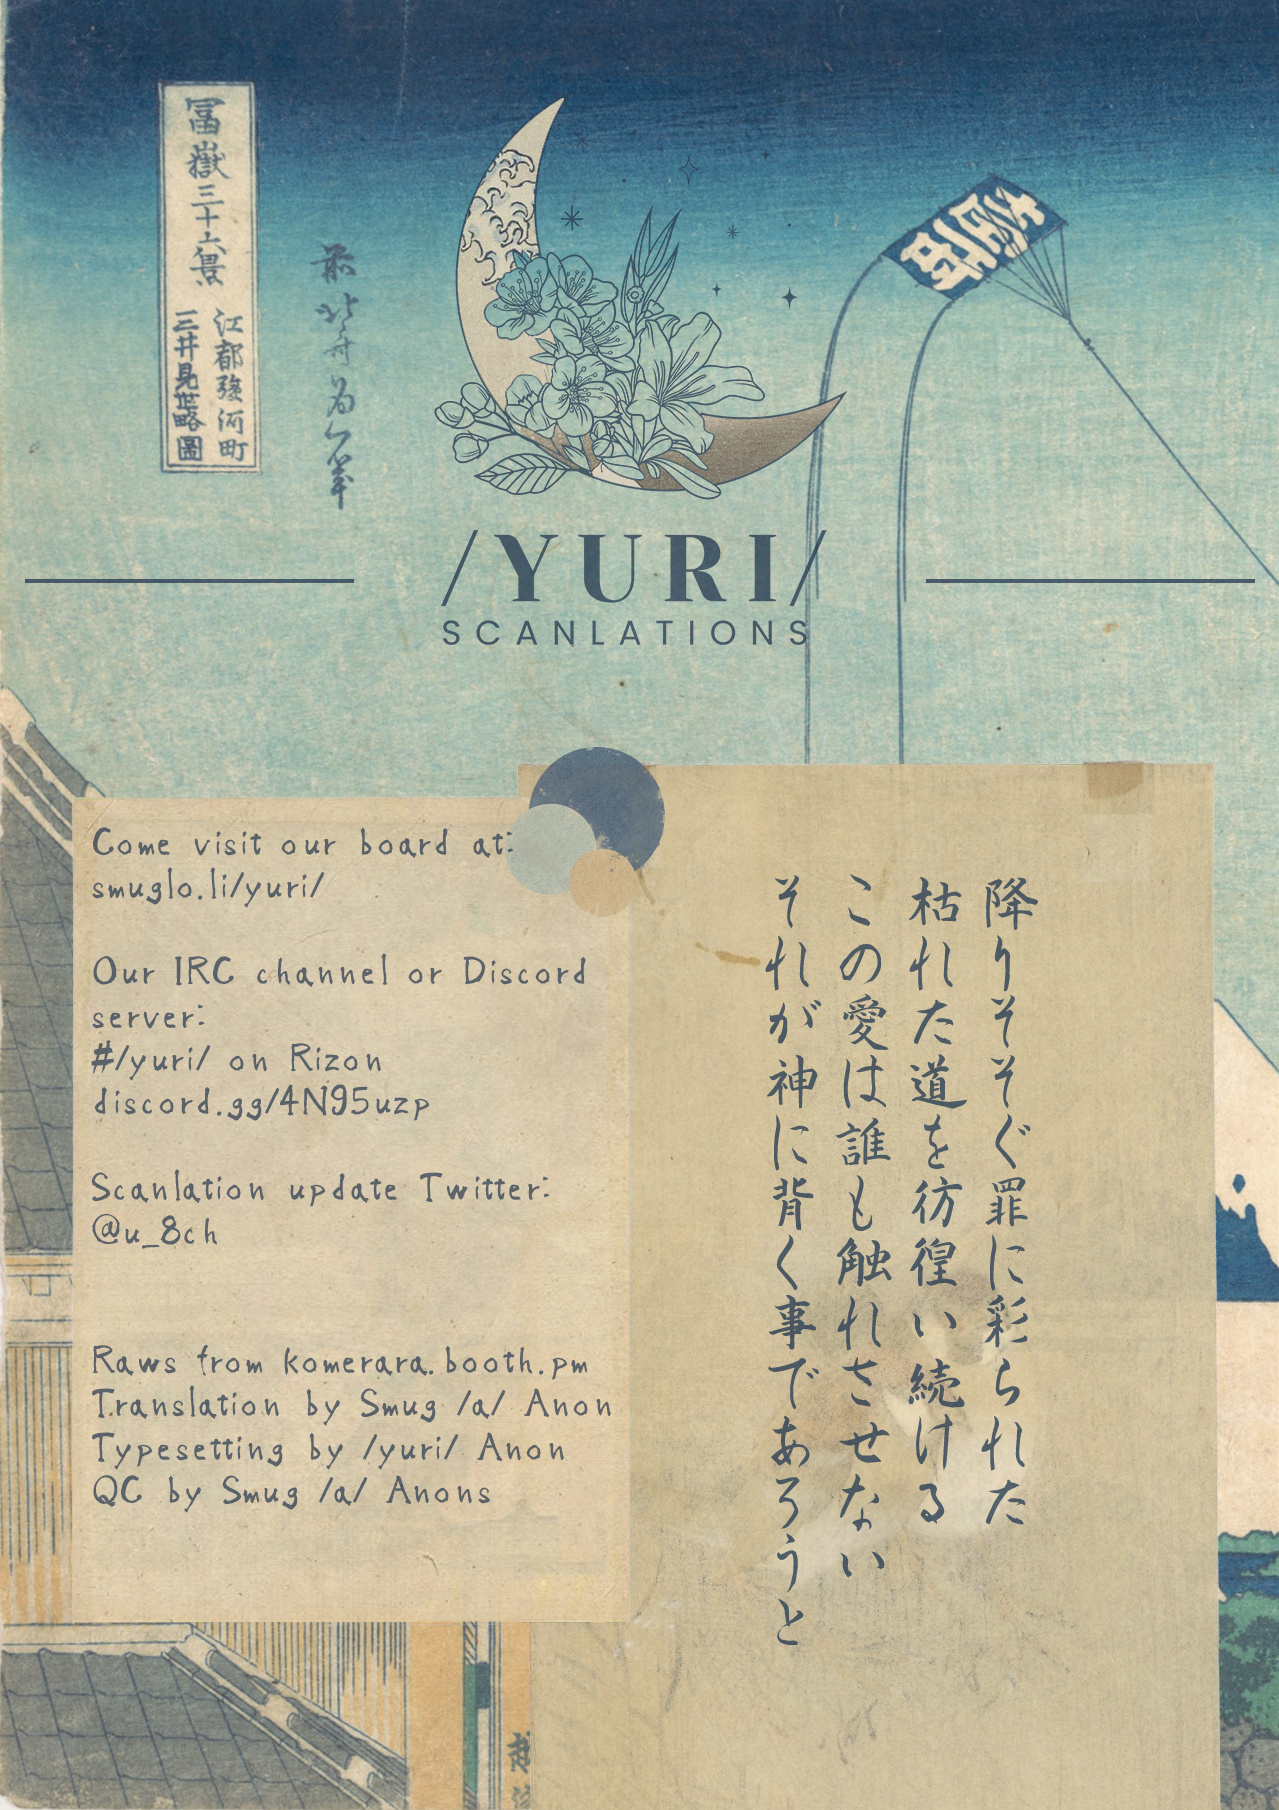 冨嶽三十六景
江都駿河町
三井見世略圖
前北斎為一筆
壽
/YURI/
SCANLATIONS
Come visit our board at:
smuglo.li/yuri/
Our IRC channel or Discord
server:
#/yuri/ on Rizon
discord.gg/4N95uzp
Scanlation update Twitter:
@u_8ch
Raws from komerara.booth.pm
Translation by Smug /a/ Anon
Typesetting by /yuri/ Anon
QC by Smug /a/ Anons
降りそそぐ罪に彩られた
枯れた道を彷徨い続ける
この愛は誰も触れさせない
それが神に背く事であろうと